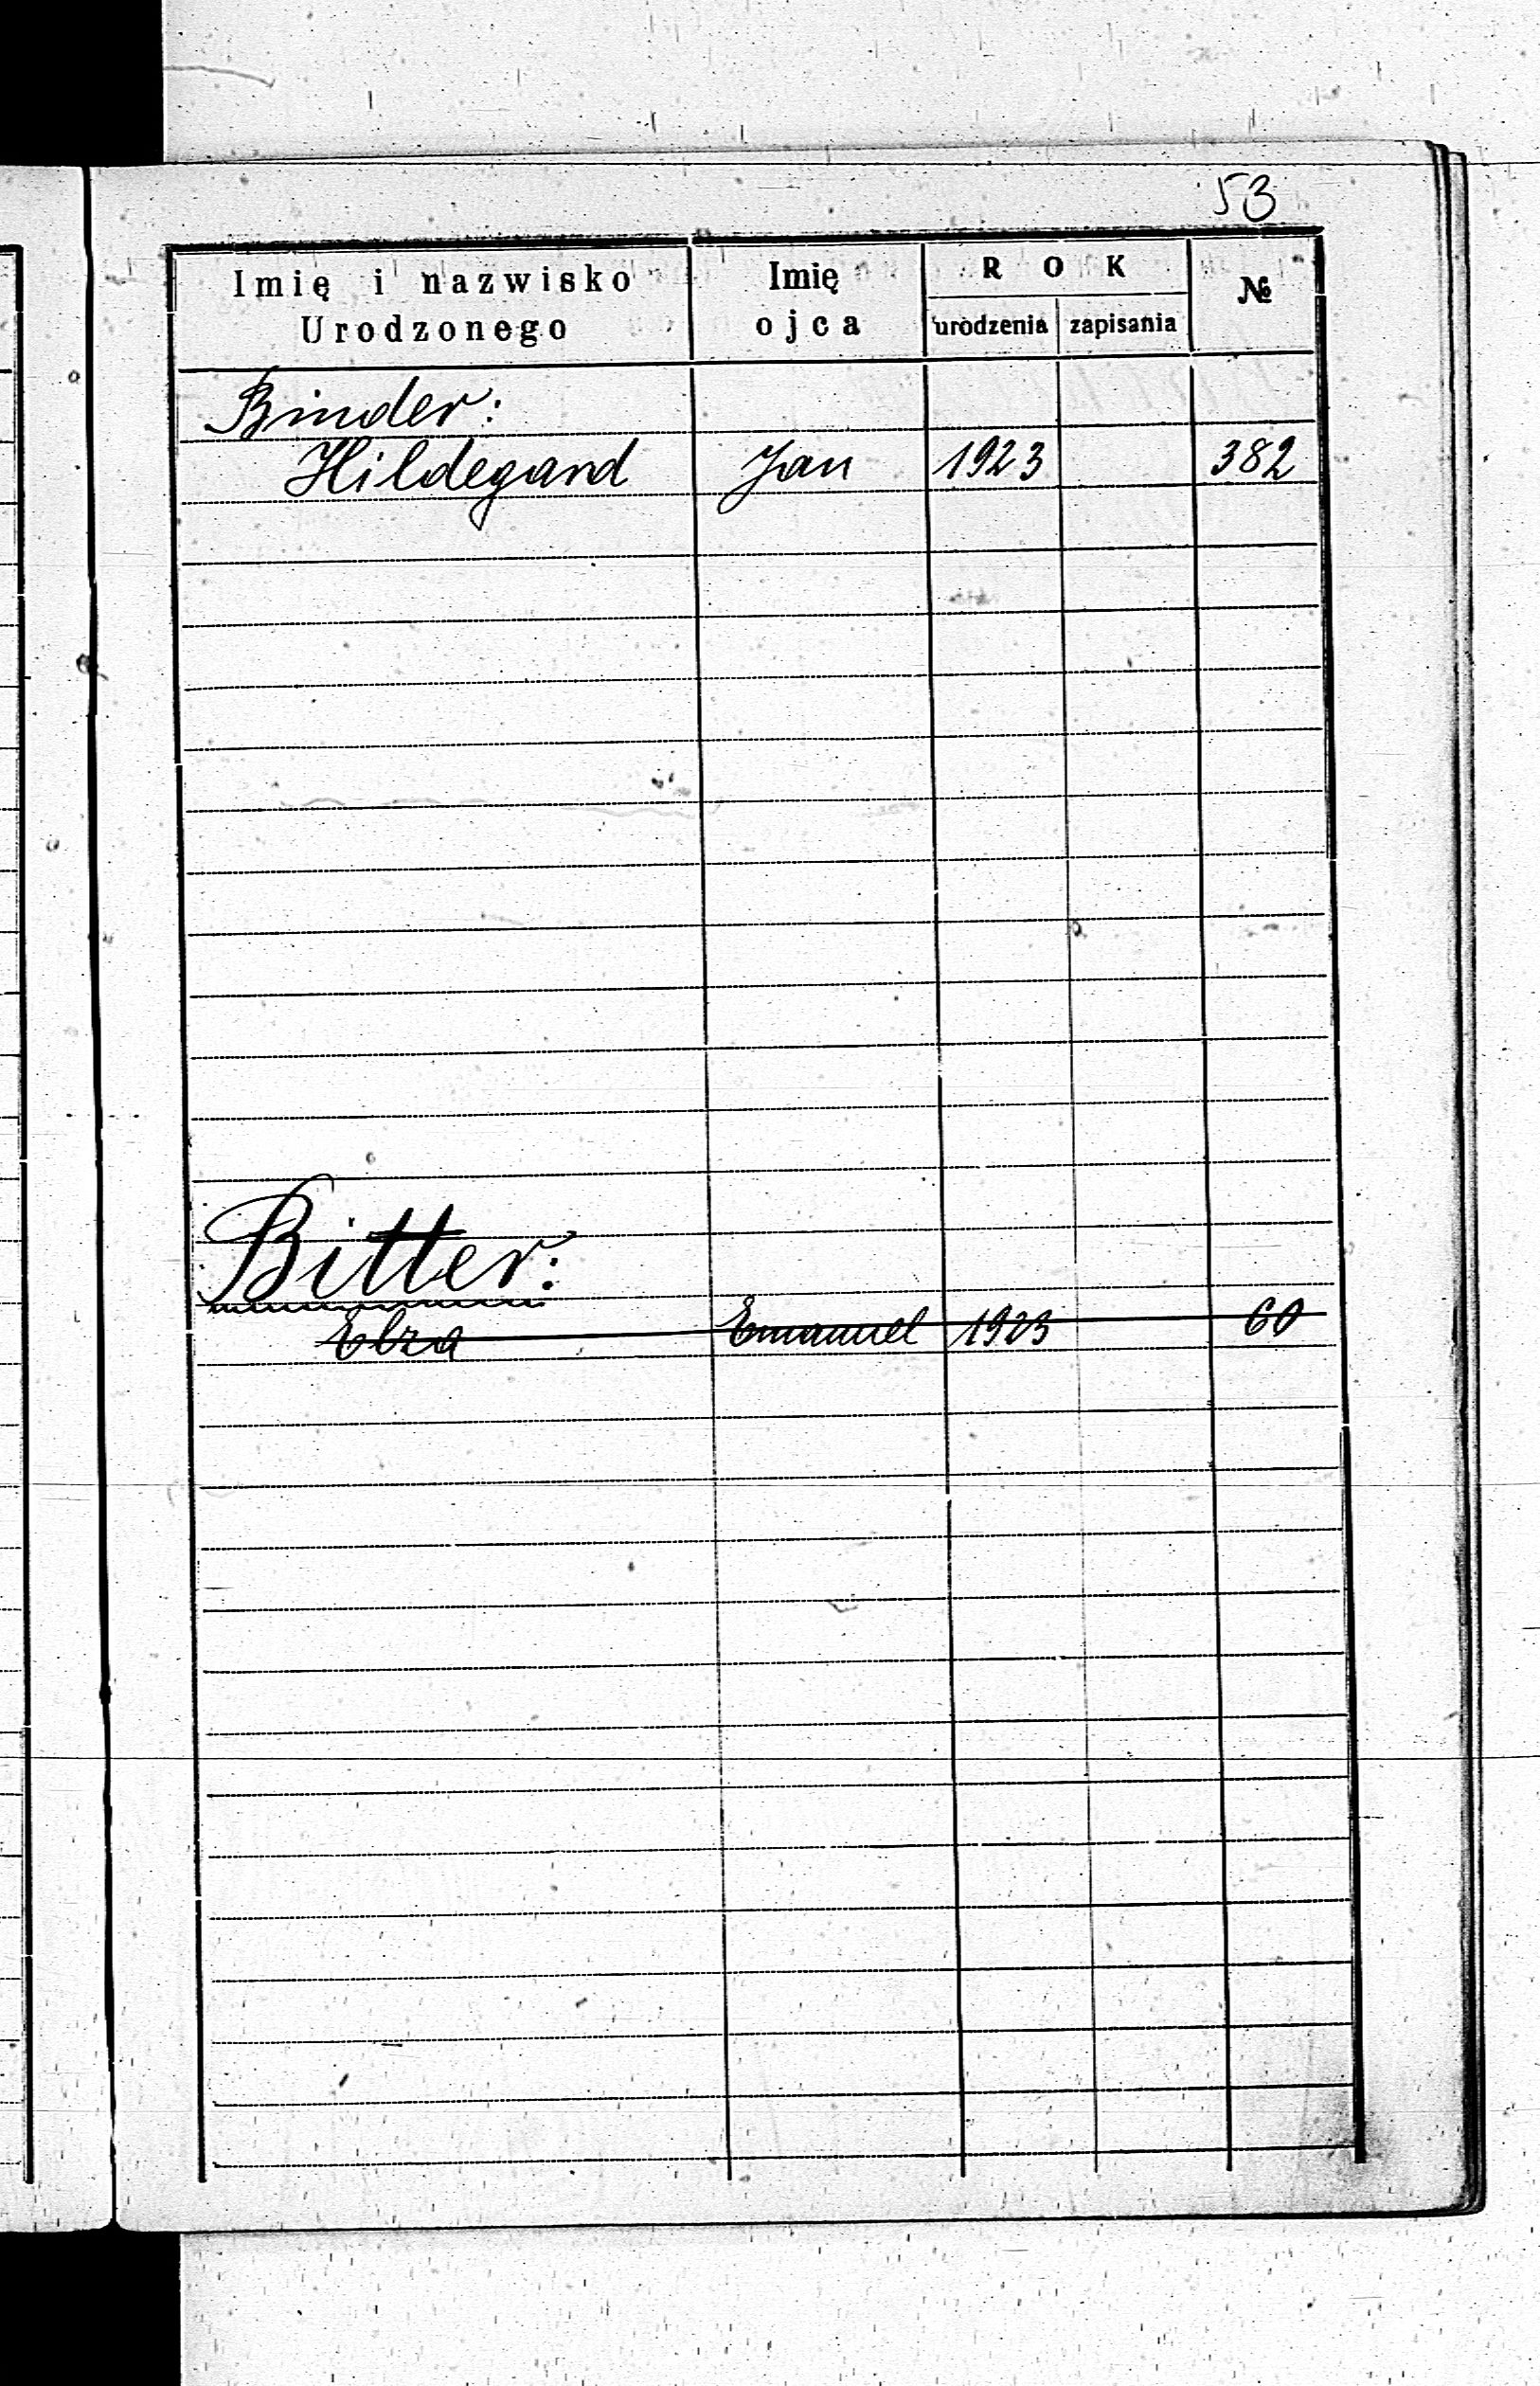 53
Imię i nazwisko Urodzonego Imię ojca ROK urodzenia zapisania №
Binder:
Hildegard Jan 1923 382
Bitter:
Elza Emanuel 1923 60